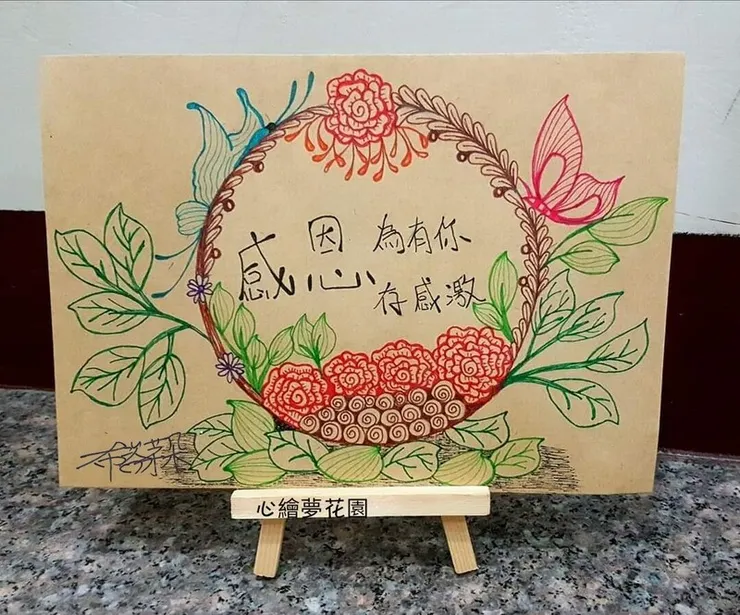 感恩
為有你
存感激
心繪夢花園